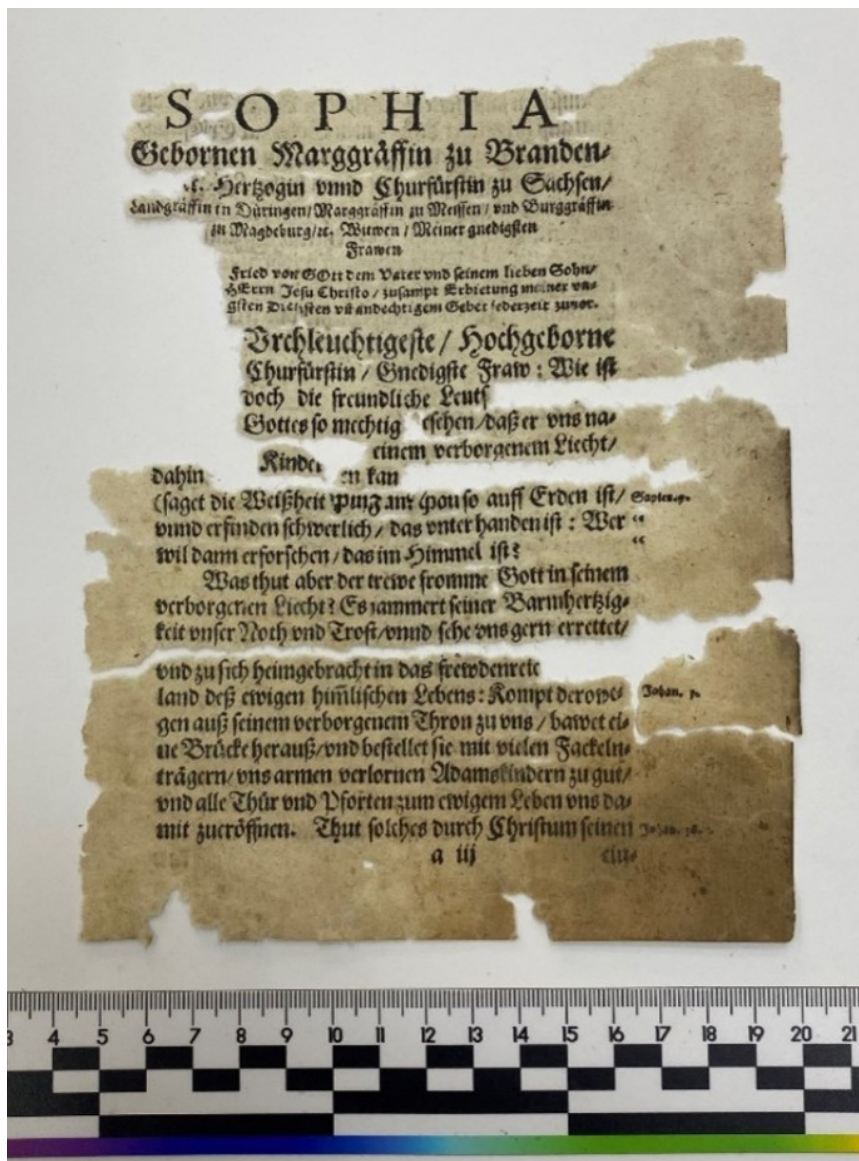 SOPHIA
Gebornen Marggräffin zu Branden⸗
Hertzogin vnnd Churfürstin zu Sachsen/
Landgräffin in Düringen/Marggräffin zu Meissen/ vnd Burggräffin
zu Magdeburg/ꝛc. Witwen / Meiner gnedigsten
Frawen
Fried von GOtt dem Vater vnd seinem lieben Sohn/
HErrn Jesu Christo / zusampt Erbietung meiner vn⸗
gsten Diensten vñ andechtigem Gebet jederzeit zuvor.
Vrchleuchtigeste / Hochgeborne
Churfürstin / Gnedigste Fraw : Wie ist
doch die freundliche Leuts
Gottes so mechtig esehen/daß er vns na⸗
einem verborgenem Liecht/
dahin Kinde en kan
(saget die Weißheit so auff Erden ist/
vnnd erfinden schwerlich / das vnter handen ist : Wer “
wil dann erforschen / das im Himmel ist? “
Was thut aber der trewe fromme Gott in seinem
verborgenen Liecht? Es jammert seiner Barmhertzig⸗
keit vnser Noth vnd Trost/vnnd sehe vns gern errettet/
vnd zu sich heimgebracht in das frewdenreic
land deß ewigen him̃lischen Lebens: Kompt derowe⸗ Johan. 1.
gen auß seinem verborgenem Thron zu vns / bawet ei⸗
ne Brücke herauß/vnd bestellet sie mit vielen Fackeln⸗
trägern/vns armen verlornen Adamskindern zu gut/
vnd alle Thür vnd Pforten zum ewigem Leben vns da⸗
mit zueröffnen. Thut solches durch Christum seinen
a iij ein⸗